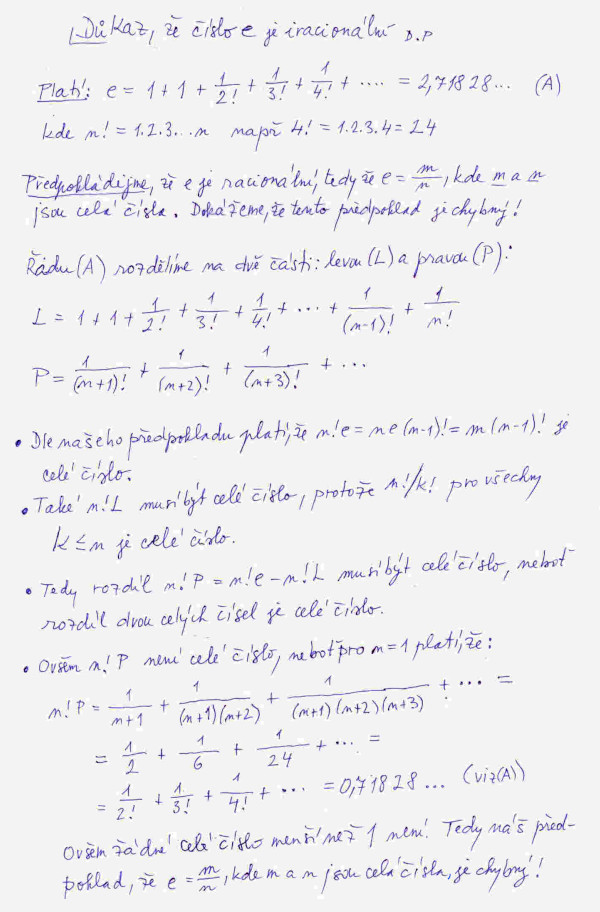 Důkaz, že číslo e je iracionální D.P
Platí: e = 1 + 1 + 1/2! + 1/3! + 1/4! + .... = 2,71828... (A)
kde n! = 1.2.3...n např 4! = 1.2.3.4 = 24
Předpokládejme, že e je racionální, tedy že e = m/n, kde m a n
jsou celá čísla. Dokážeme, že tento předpoklad je chybný!
Řadu (A) rozdělíme na dvě části: levou (L) a pravou (P):
L = 1 + 1 + 1/2! + 1/3! + 1/4! + ... + 1/(n-1)! + 1/n!
P = 1/(n+1)! + 1/(n+2)! + 1/(n+3)! + ...
• Dle našeho předpokladu platí, že n!e = ne(n-1)! = m(n-1)! je
celé číslo.
• Také n!L musí být celé číslo, protože n!/k! pro všechny
k ≤ n je celé číslo.
• Tedy rozdíl n!P = n!e - n!L musí být celé číslo, neboť
rozdíl dvou celých čísel je celé číslo.
• Ovšem n!P není celé číslo, neboť pro n=1 platí, že:
n!P = 1/(n+1) + 1/((n+1)(n+2)) + 1/((n+1)(n+2)(n+3)) + ... =
= 1/2 + 1/6 + 1/24 + ... =
= 1/2! + 1/3! + 1/4! + ... = 0,71828... (viz(A))
Ovšem žádné celé číslo menší než 1 není! Tedy náš před-
poklad, že e = m/n, kde m a n jsou celá čísla, je chybný!